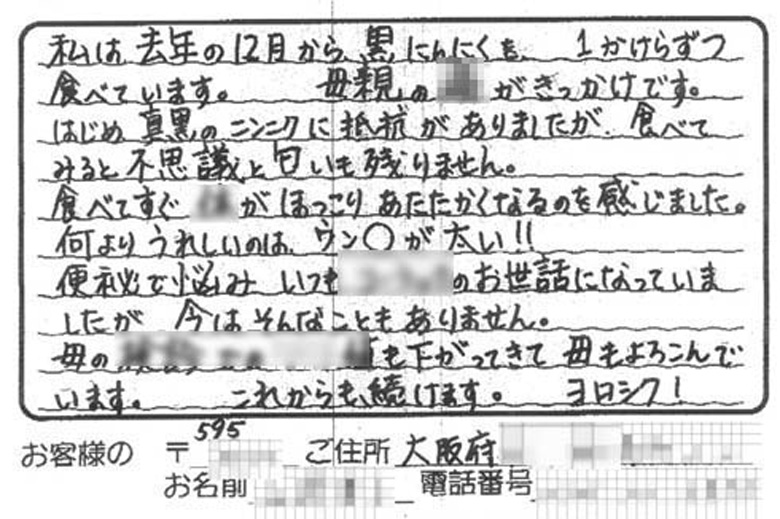 私は去年の12月から黒にんにくを、 1かけらずつ
食べています。 母親の がきっかけです。
はじめ真黒のニンニクに抵抗がありましたが、食べて
みると不思議と匂いも残りません。
食べてすぐ がほっこりあたたかくなるのを感じました。
何よりうれしいのは、ウン〇が太い!!
便秘で悩み いつも のお世話になっていま
したが 今はそんなこともありません。
母の も下がってきて 母もよろこんで
います。 これからも、続けます。 ヨロシク!
お客様の 〒595 ご住所 大阪府
お名前 電話番号